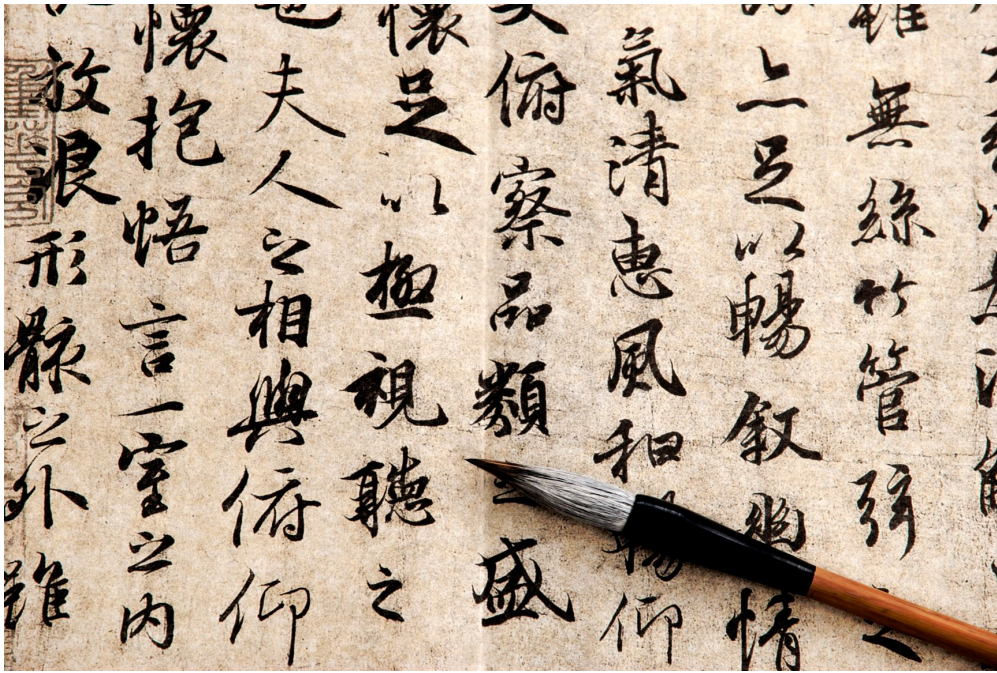 雖無絲竹管弦之
亦足以暢叙幽情
氣清惠風和暢仰
俯察品類之盛
懷足以極視聽之
夫人之相與俯仰
懷抱悟言一室之内
放浪形骸之外雖